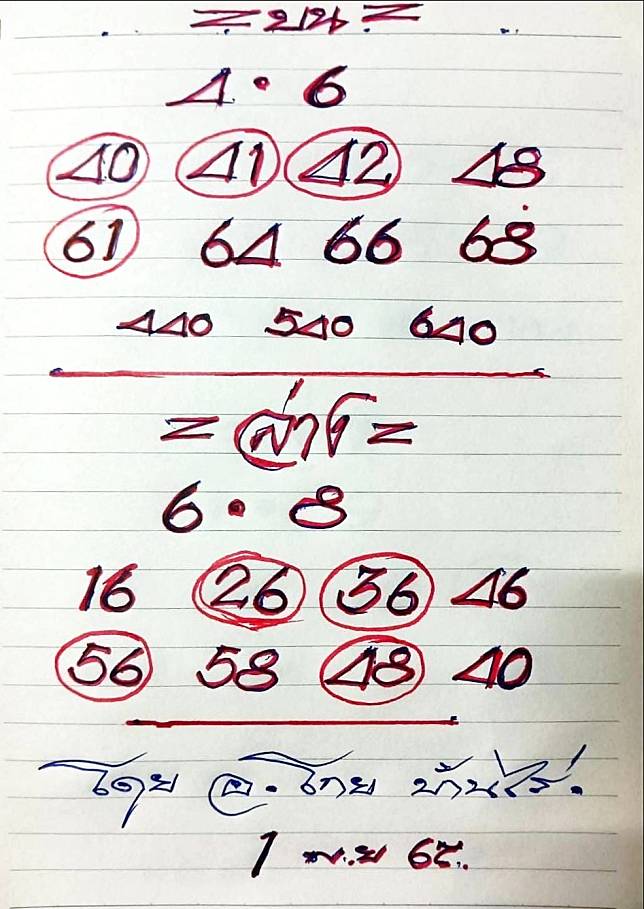 = บน =
4 · 6
40 41 42 48
61 64 66 68
440 540 640
= ล่าง =
6 · 8
16 26 36 46
56 58 48 40
โดย อ. โกย บ้านไร่.
1 พ.ย 65.